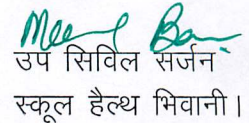 उप सिविल सर्जन
स्कूल हैल्थ भिवानी।